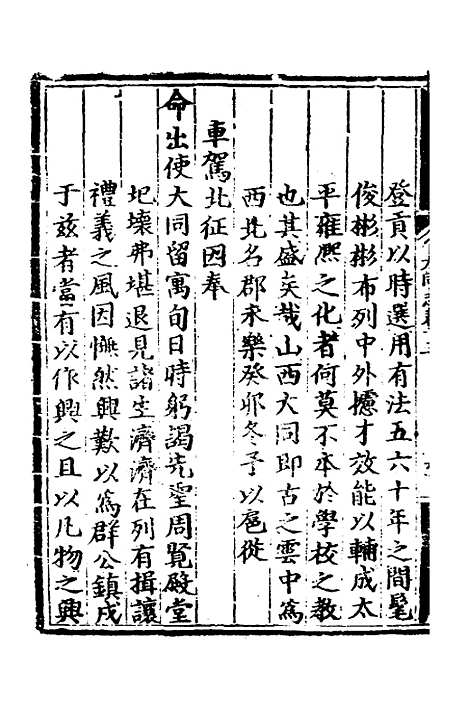 登貢以時選用有法五六十年之間髦
俊彬彬布列中外攄才效能以輔成太
平雍熈之化者何莫不本於學校之教
也其盛矣哉山西大同即古之雲中爲
西北名郡永樂癸卯冬予以扈從
車駕北征因奉
命出使大同留寓旬日時躬謁先聖周覽殿堂
圮壊弗堪退見諸生濟濟在列有揖讓
禮義之風因憮然興歎以爲群公鎮戍
于兹者當有以作興之且以凡物之興